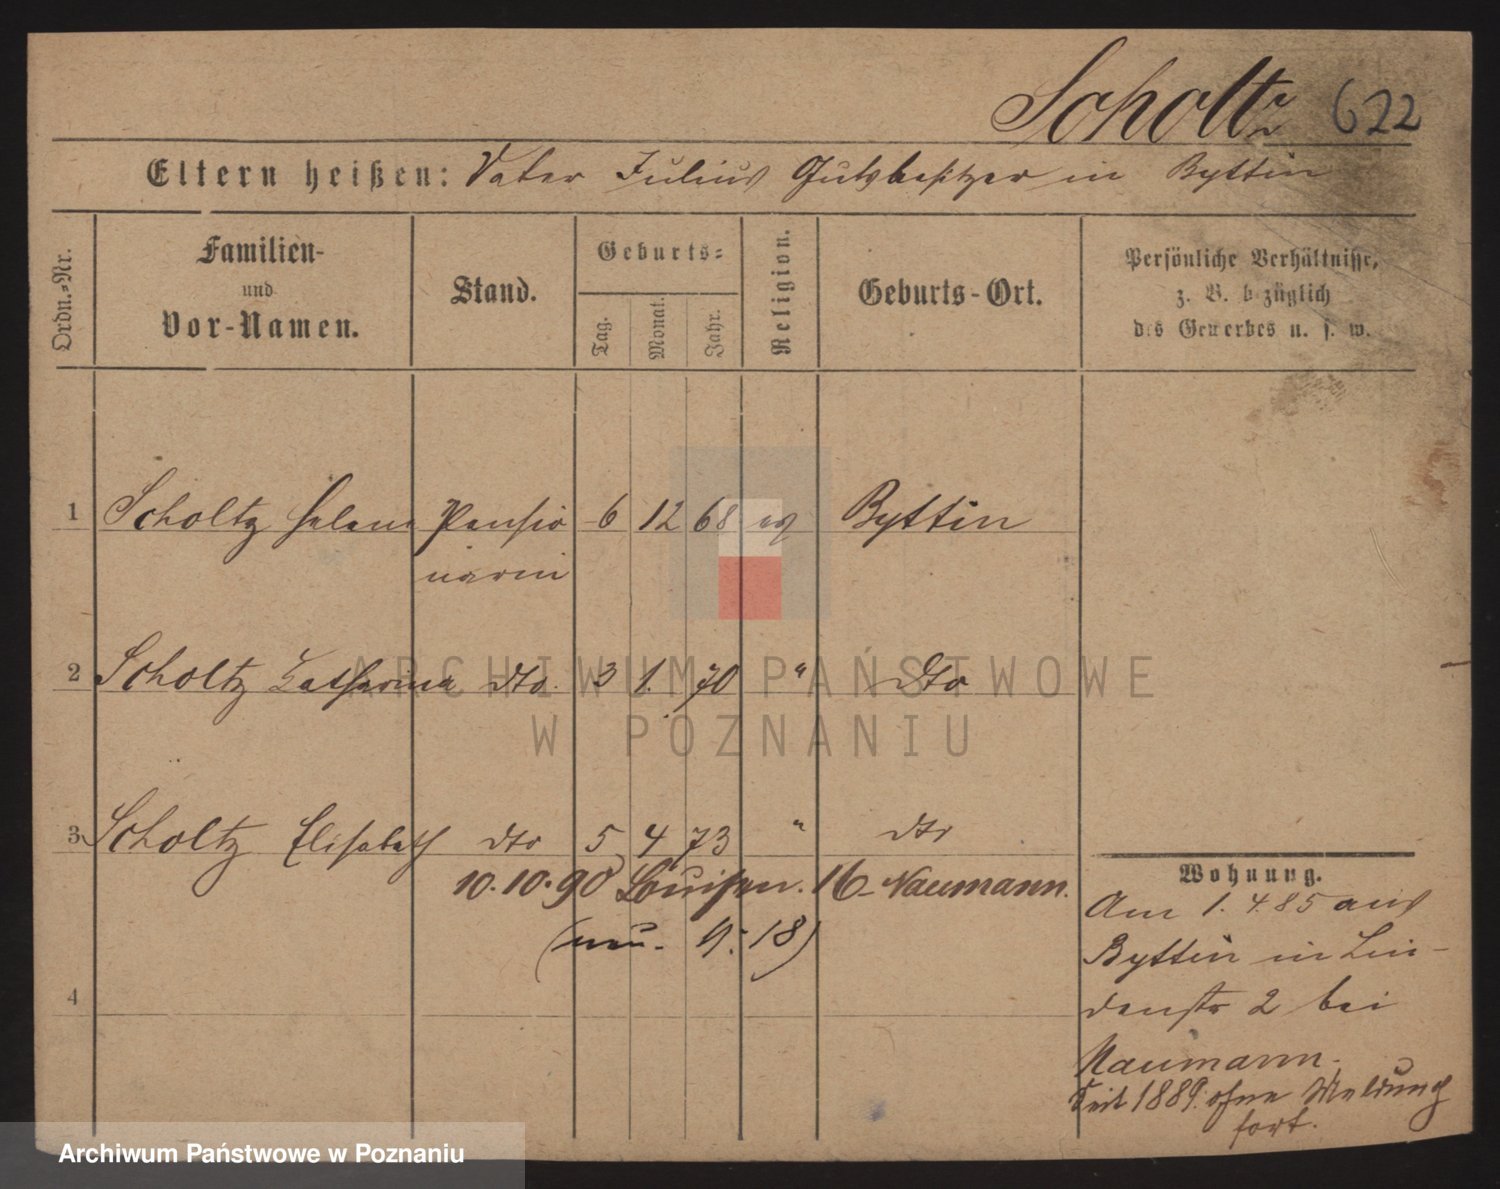 Scholtz 622
Eltern heißen: Vater Julius Gutsbesitzer in Byttin
Ordn.-Nr.
Familien-
und
Vor-Namen.
Stand.
Geburts-
Tag.
Monat.
Jahr.
Religion.
Geburts-Ort.
Persönliche Verhältnisse,
z. B. bezüglich
des Gewerbes u. s. w.
1 Scholtz Helene Pensio 6 12 68 ev Byttin
närin
2 Scholtz Katharina dto. 3 1. 70 " dto
3 Scholtz Elisabeth dto 5 4 73 " dto
10. 10. 90 Louisen. 16 Naumann.
(neu- N: 18)
4
Wohnung.
Am 1. 4. 85 aus
Byttin in Lin-
denstr 2 bei
Naumann.
Seit 1889 ohne Meldung
fort.
ARCHIWUM PAŃSTWOWE
W POZNANIU
Archiwum Państwowe w Poznaniu